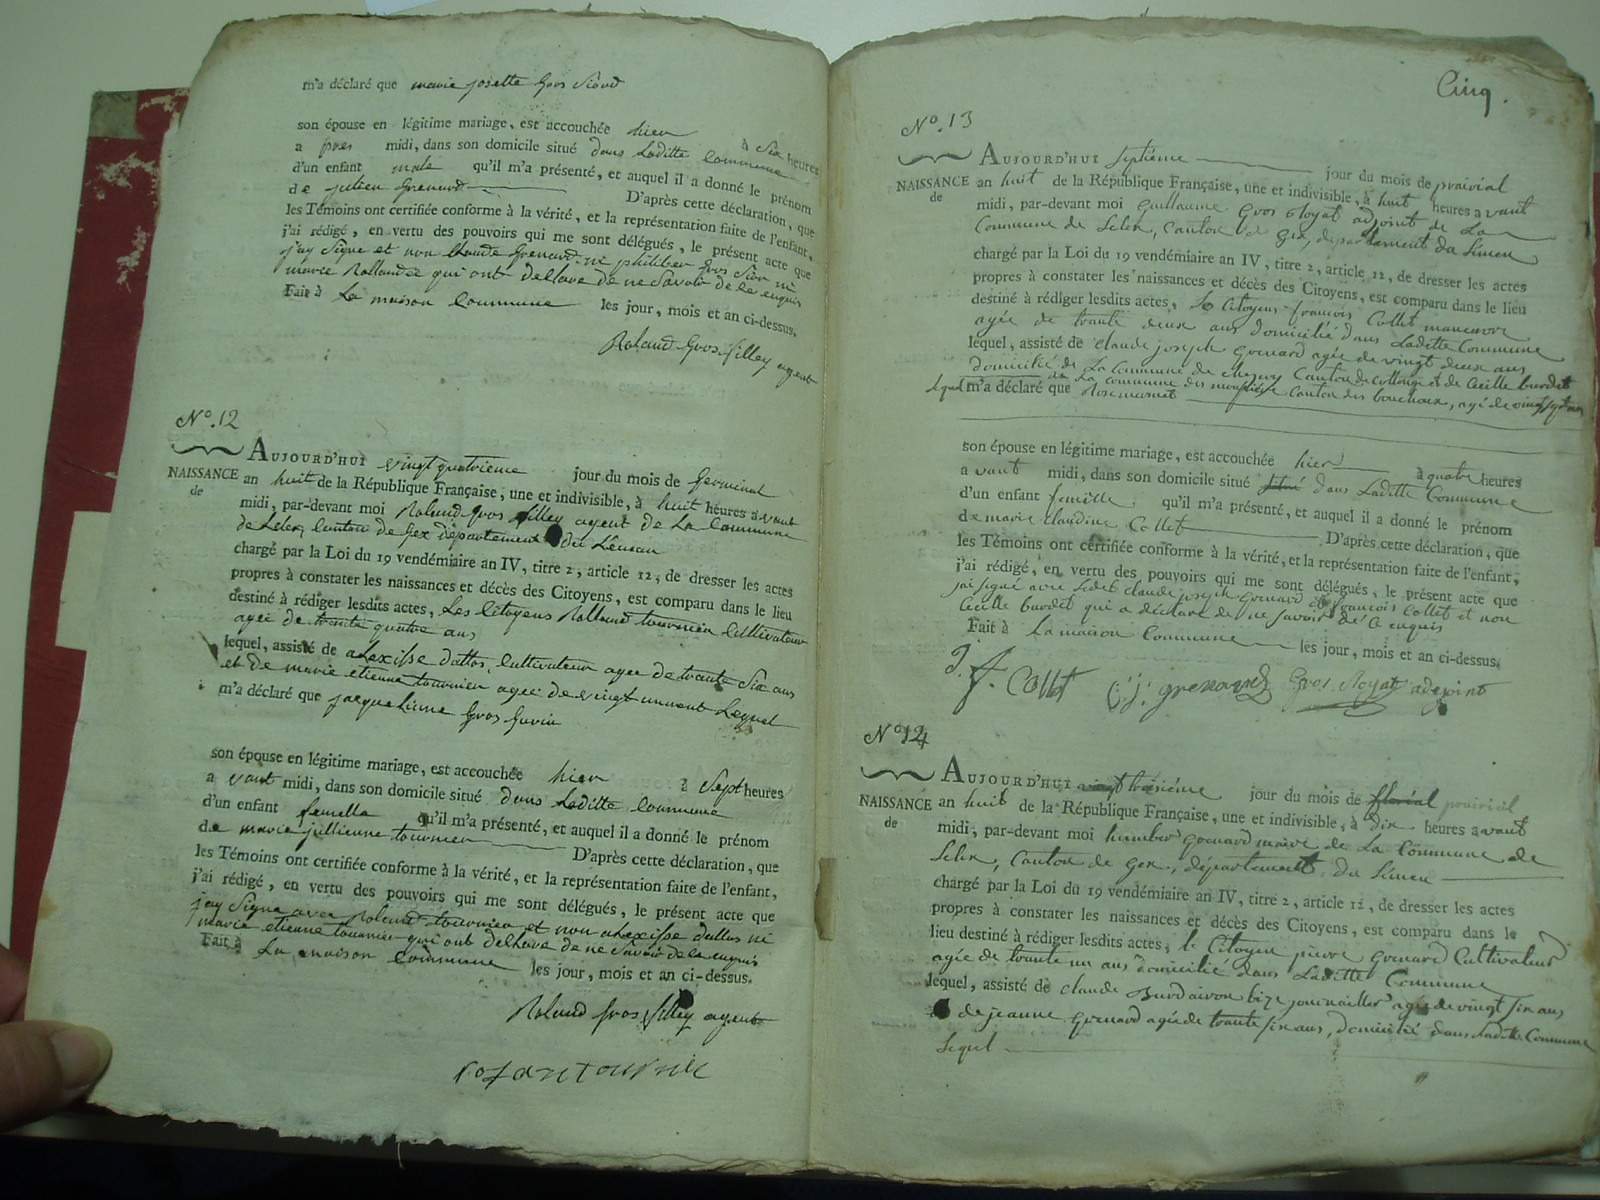 m'a déclaré que marie josette Gros Siord
son épouse en légitime mariage, est accouchée hier à Six heures
a pres midi, dans son domicile situé dans Laditte Commune
d'un enfant male qu'il m'a présenté, et auquel il a donné le prénom
de julien Grenard D'après cette déclaration, que
les Témoins ont certifiée conforme à la vérité, et la représentation faite de l'enfant,
j'ai rédigé, en vertu des pouvoirs qui me sont délégués, le présent acte que
j'ay Signe et non Claude Grenard ni philiber Gros Sior ni
marie Rollandee qui ont declare de ne Savoir de ce enquis
Fait à La maison Commune les jour, mois et an ci-dessus.
Roland Gros filley agent
N°. 12
NAISSANCE
de
AUJOURD'HUI vingt quatrieme jour du mois de Germinal
an huit de la République Française, une et indivisible, à huit heures avant
midi, par-devant moi Roland Gros filley agent de La Commune
de Lelex, Canton de Gex département du Lleman
chargé par la Loi du 19 vendémiaire an IV, titre 2, article 12, de dresser les actes
propres à constater les naissances et décès des Citoyens, est comparu dans le lieu
destiné à rédiger lesdits actes, Les Citoyens Rolland tournier Cultivateur
agée de trante quatre ans
lequel, assisté de alexisse dallos, Cultivateur agee de trante Six ans
et de marie etienne tournier agee de vingt un ant Lequel
m'a déclaré que jacqueline Gros Gurin
son épouse en légitime mariage, est accouchée hier à Sept heures
a vant midi, dans son domicile situé dans Laditte Commune
d'un enfant femella qu'il m'a présenté, et auquel il a donné le prénom
de marie jullienne tournier D'après cette déclaration, que
les Témoins ont certifiée conforme à la vérité, et la représentation faite de l'enfant,
j'ai rédigé, en vertu des pouvoirs qui me sont délégués, le présent acte que
j'ay Signe avec Roland tournier et non alexisse dallos ni
marie etienne tournier qui ont declare de ne Savoir de ce enquis
Fait à La maison Commune les jour, mois et an ci-dessus.
Roland Gros filley agent
Cinq.
N°. 13
NAISSANCE
de
AUJOURD'HUI Septiéme jour du mois de prairial
an huit de la République Française, une et indivisible, à huit heures avant
midi, par-devant moi Guillaume Gros Royat adjoint de La
Commune de Lelex, Canton de Gex, département du Liman
chargé par la Loi du 19 vendémiaire an IV, titre 2, article 12, de dresser les actes
propres à constater les naissances et décès des Citoyens, est comparu dans le lieu
destiné à rédiger lesdits actes, le Citoyens francois Collet maneuvre
agée de trante deux ans domicilié dans Ladette Commune
lequel, assisté de claude joseph Grenard agée de vingt deux ans
domicilié de La Commune de Chezery Canton de Collonge et de Cecille burdet
de La Commune des Canton des bouchoux, agé de vingt sept ans
lequel m'a déclaré que Rose
son épouse en légitime mariage, est accouchée hier à quatre heures
a vant midi, dans son domicile situé dans Laditte Commune
d'un enfant femille qu'il m'a présenté, et auquel il a donné le prénom
de marie claudine Collet D'après cette déclaration, que
les Témoins ont certifiée conforme à la vérité, et la représentation faite de l'enfant,
j'ai rédigé, en vertu des pouvoirs qui me sont délégués, le présent acte que
jai signé avec ledit claude joseph Grenard et francois Collet et non
Cecille burdet qui a déclaré de ne savoir de ce enquis
Fait à La maison Commune les jour, mois et an ci-dessus.
J. f. Collet C. j. grenard Gros Royat adjoint
N° 14
NAISSANCE
de
AUJOURD'HUI vingt troisiéme jour du mois de floréal prairial
an huit de la République Française, une et indivisible, à dix heures avant
midi, par-devant moi humber Grenard maire de La Commune de
Lelex, Canton de Gex, département du Liman
chargé par la Loi du 19 vendémiaire an IV, titre 2, article 12, de dresser les actes
propres à constater les naissances et décès des Citoyens, est comparu dans le
lieu destiné à rédiger lesdits actes, le Citoyen pierre Grenard Cultivateur
agée de trante un ans domicilié dans Laditte Commune
lequel, assisté de claude journailler agée de vingt six ans
de jeanne Grenard agée de trante six ans, domicilié dans ladite Commune
Lequel